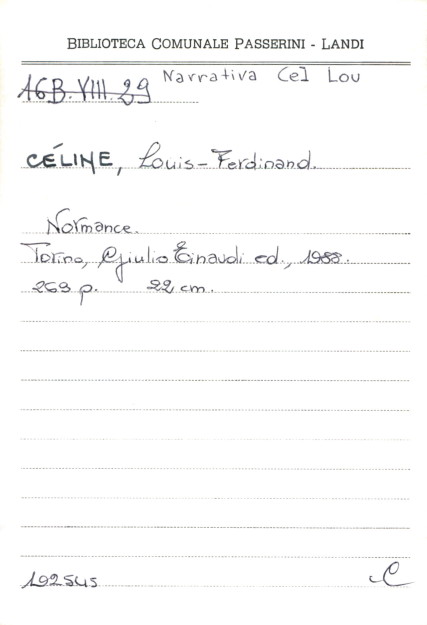 BIBLIOTECA COMUNALE PASSERINI - LANDI
16B.VIII.29 Narrativa Cel Lou
CÉLINE, Louis-Ferdinand.
Normance.
Torino, Giulio Einaudi ed., 1988.
269 p. 22 cm.
192545 C